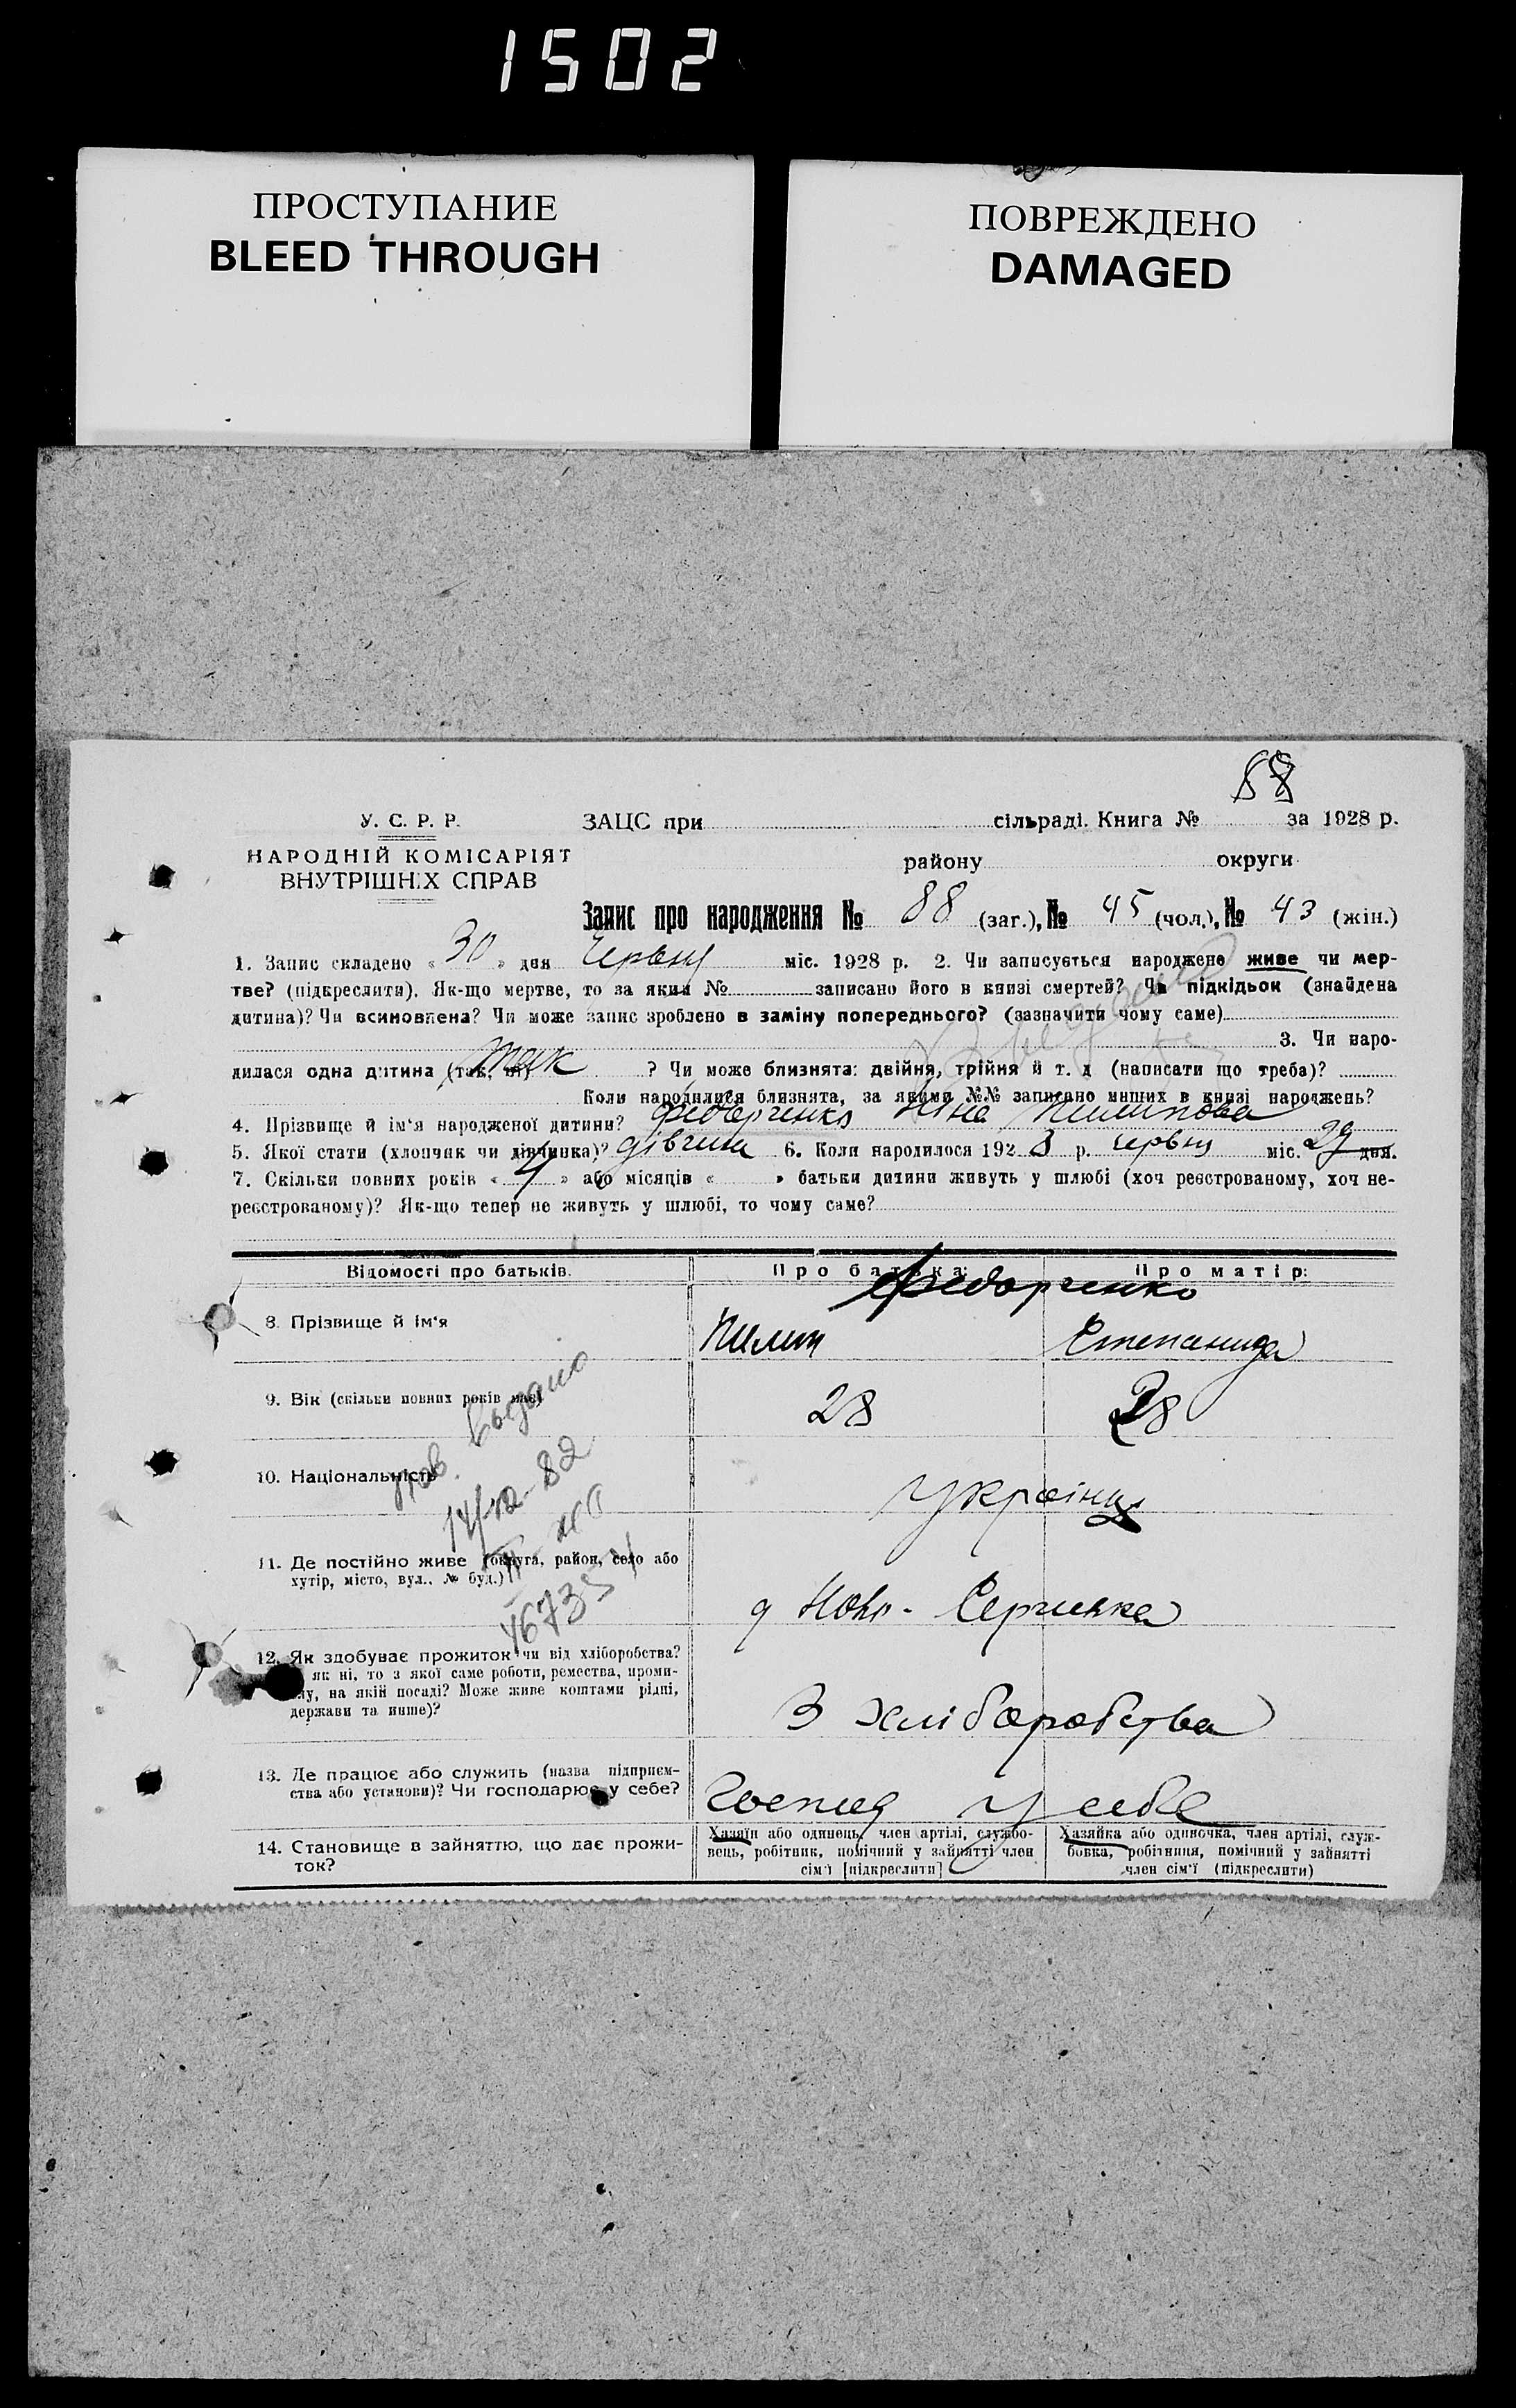 1502
ПРОСТУПАНИЕ
BLEED THROUGH
ПОВРЕЖДЕНО
DAMAGED
88
У. С. Р. Р.
НАРОДНІЙ КОМІСАРІЯТ
ВНУТРІШНІХ СПРАВ
ЗАЦС при сільраді. Книга № за 1928 р.
району округи
Запис про народження № 88 (заг.), № 45 (чол.), № 43 (жін.)
1. Запис складено « 30 » дня Червня міс. 1928 р. 2. Чи записується народжене живе чи мер-
тве? (підкреслити). Як-що мертве, то за яким № записано його в книзі смертей? Чи підкідьок (знайдена
дитина)? Чи всиновлена? Чи може запис зроблено в заміну попереднього? (зазначити чому саме)
3. Чи наро-
дилася одна дитина (так, ні) так ? Чи може близнята: двійня, трійня й т. д (написати що треба)?
Коли народилися близнята, за якими №№ записано инших в книзі народжень?
4. Прізвище й ім'я народженої дитини? Федорченко Ніна Пилипова
5. Якої стати (хлопчик чи дівчинка)? дівчина 6. Коли народилося 192 8 р. червня міс. 29 дня.
7. Скільки повних років « 4 » або місяців « » батьки дитини живуть у шлюбі (хоч реєстрованому, хоч не-
реєстрованому)? Як-що тепер не живуть у шлюбі, то чому саме?
Відомості про батьків. Про батька: Про матір:
Федорченко
8. Прізвище й ім'я Пилип Степанида
9. Вік (скільки повних років має) 28 28
выдано
14/12-82
10. Національність Українці
11. Де постійно живе (округа, район, село або
хутір, місто, вул., № буд.)
Ново-
467354
12. Як здобуває прожиток чи від хліборобства?
як ні, то з якої саме роботи, ремества, проми-
слу, на якій посаді? Може живе коштами рідні,
держави та инше)?
З хліборобства
13. Де працює або служить (назва підприєм-
ства або установи)? Чи господарює у себе?
у себе
14. Становище в зайняттю, що дає прожи-
ток?
Хазяїн або одинець, член артілі, службо-
вець, робітник, помічний у зайнятті член
сім'ї [підкреслити]
Хазяйка або одиночка, член артілі, служ-
бовка, робітниця, помічний у зайнятті
член сім'ї (підкреслити)